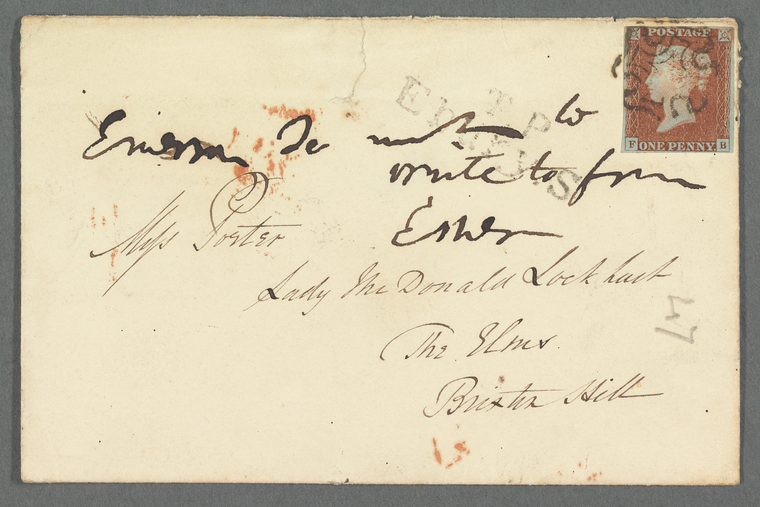 POSTAGE
F ONE PENNY B
T.P
to
write to from
Esher
Miss Porter
Lady McDonald Lockhart
The Elms
Brixton Hill
47